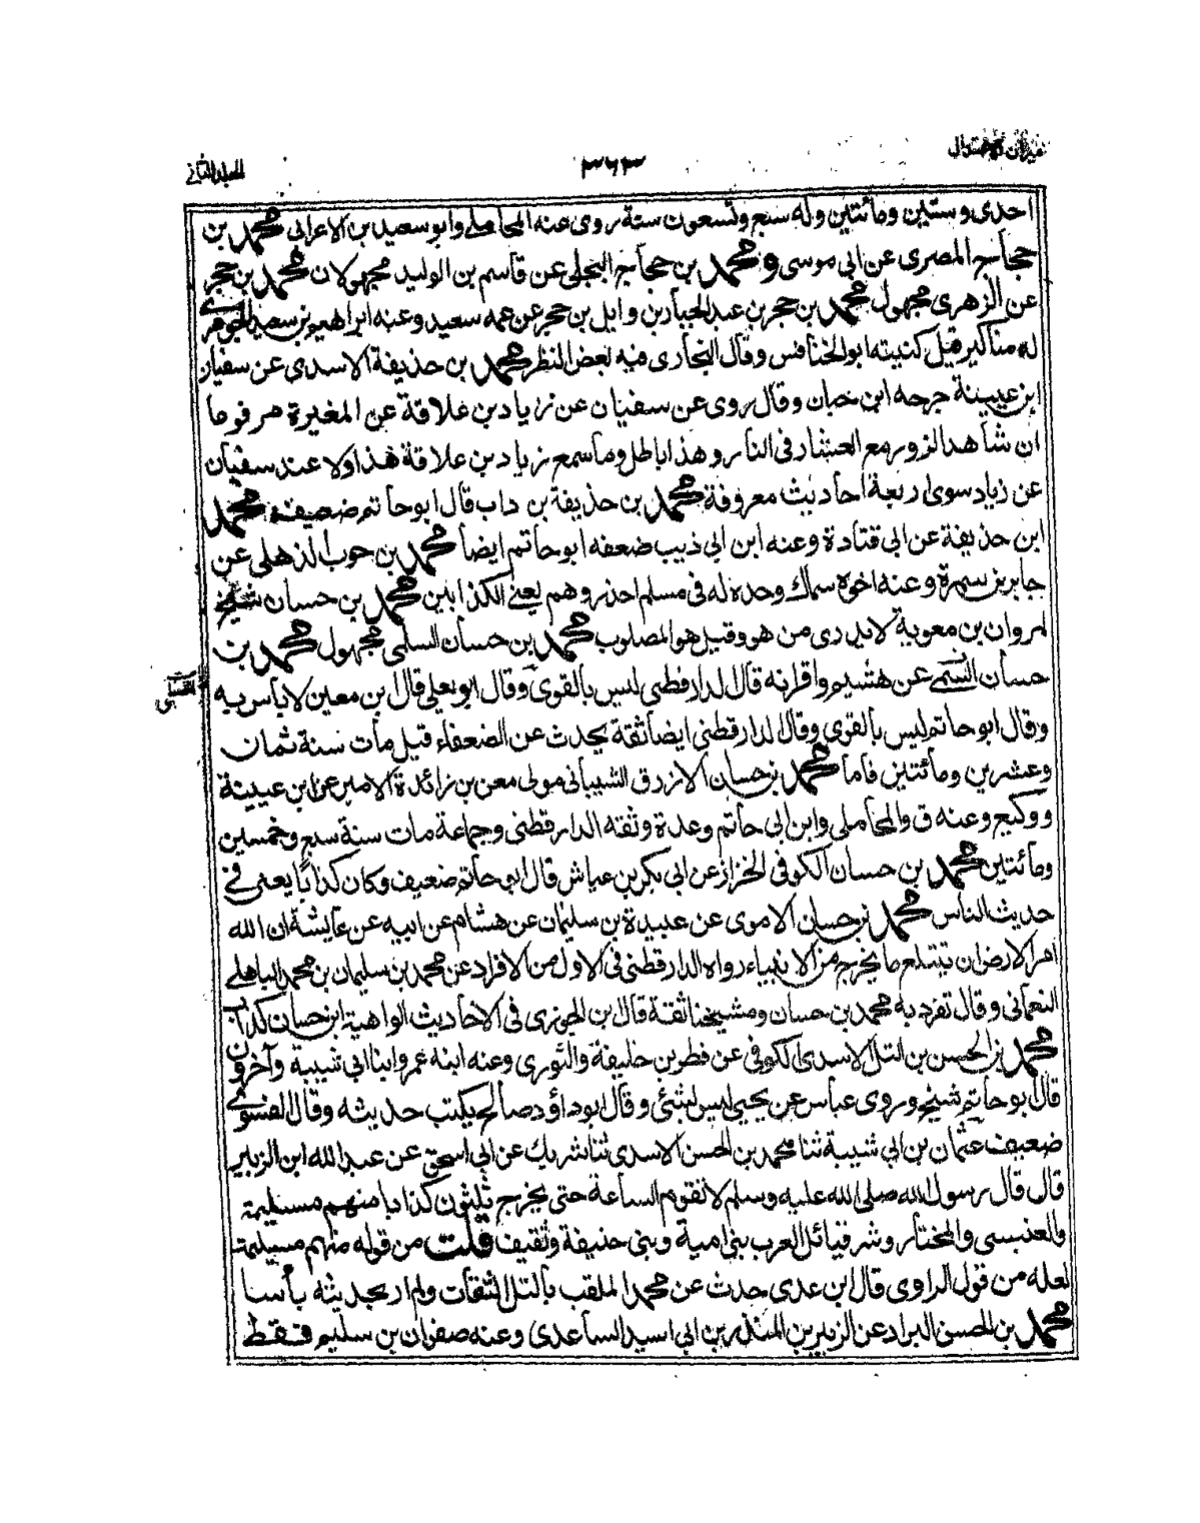 ميزان الاعتدال
٣٦٣
المجلد الثانى
احدى وستين ومائتين وله سبع وتسعون سنة روى عنه المحاملى وابو سعيد بن الاعرابى محمد بن
حجاج المصرى عن ابى موسى ومحمد بن حجاج البجلى عن قاسم بن الوليد مجهولان محمد بن حجر
عن الزهرى مجهول محمد بن حجر بن عبد الجبار بن وايل بن حجر عن عمه سعيد وعنه ابراهيم بن سعيد الجوهرى
له مناكير قيل كنيته ابو الخنافس وقال البخارى فيه بعض النظر محمد بن حذيفة الاسدى عن سفيان
ابن عيينة جرحه ابن حبان وقال روى عن سفيان عن زياد بن علاقة عن المغيرة مرفوعا
ان شاهد الزور مع العشار فى النار وهذا باطل وما سمع زياد بن علاقة هذا ولا عند سفيان
عن زياد سوى اربعة احاديث معروفة محمد بن حذيفة بن داب قال ابو حاتم ضعيف محمد
ابن حذيفة عن ابى قتادة وعنه ابن ابى ذيب ضعفه ابو حاتم ايضا محمد بن حرب الذهلى عن
جابر بن سمرة وعنه اخوه سماك وحده له فى مسلم احذروهم يعنى الكذابين محمد بن حسان شيخ
لمروان بن معوية لا يدرى من هو وقيل هو المصلوب محمد بن حسان السلمى مجهول محمد بن
حسان السمتى عن هشيم واقرانه قال الدارقطنى ليس بالقوى وقال ابو يعلى قال ابن معين لا باس به
وقال ابو حاتم ليس بالقوى وقال الدارقطنى ايضا ثقة يحدث عن الضعفاء قيل مات سنة ثمان
وعشرين ومائتين فاما محمد بن حسان الازرق الشيبانى مولى معن بن زائدة الامير عن ابن عيينة
ووكيع وعنه ق والمحاملى وابن ابى حاتم وعدة وثقه الدارقطنى وجماعة مات سنة سبع وخمسين
ومائتين محمد بن حسان الكوفى الخزاز عن ابى بكر بن عياش قال ابو حاتم ضعيف وكان كذابا يعنى فى
حديث الناس محمد بن حسان الاموى عن عبيدة بن سليمان عن هشام عن ابيه عن عايشة ان الله
امر الارض ان تبتلع ما يخرج من الانبياء رواه الدارقطنى فى الاول من الافراد عن محمد بن سليمان بن محمد الباهلى
النعمانى وقال تفرد به محمد بن حسان ومشيخنا ثقة قال ابن الجوزى فى الاحاديث الواهية ابن حسان كذاب
محمد بن الحسن بن التل الاسدى الكوفى عن فطر بن خليفة والثورى وعنه ابنه عمر وابنا ابى شيبة وآخرون
قال ابو حاتم شيخ وروى عباس عن يحيى ليس بشئ وقال ابو داؤد صالح يكتب حديثه وقال الفسوى
ضعيف عثمان بن ابى شيبة ثنا محمد بن الحسن الاسدى ثنا شريك عن ابى اسحق عن عبد الله ابن الزبير
قال قال رسول الله صلى الله عليه وسلم لا تقوم الساعة حتى يخرج ثلثون كذابا منهم مسيلمة
والعنسى والمختار وشر قبائل العرب بنى امية وبنى حنيفة وثقيف قلت من قوله منهم مسيلمة
لعله من قول الراوى قال ابن عدى حدث عن محمد الملقب بالتل الثقات ولم ار بحديثه بأسا
محمد بن الحسن البراد عن الزبير بن المنذر بن ابى اسيد الساعدى وعنه صفوان بن سليم فقط